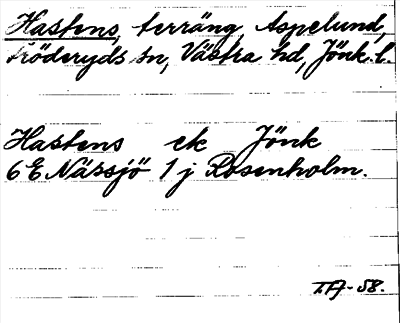 Hastens, terräng, Aspelund,
Fröderyds sn, Västra hd, Jönk. l.
Hastens ek Jönk
6 E Nässjö 1 j Rosenholm.